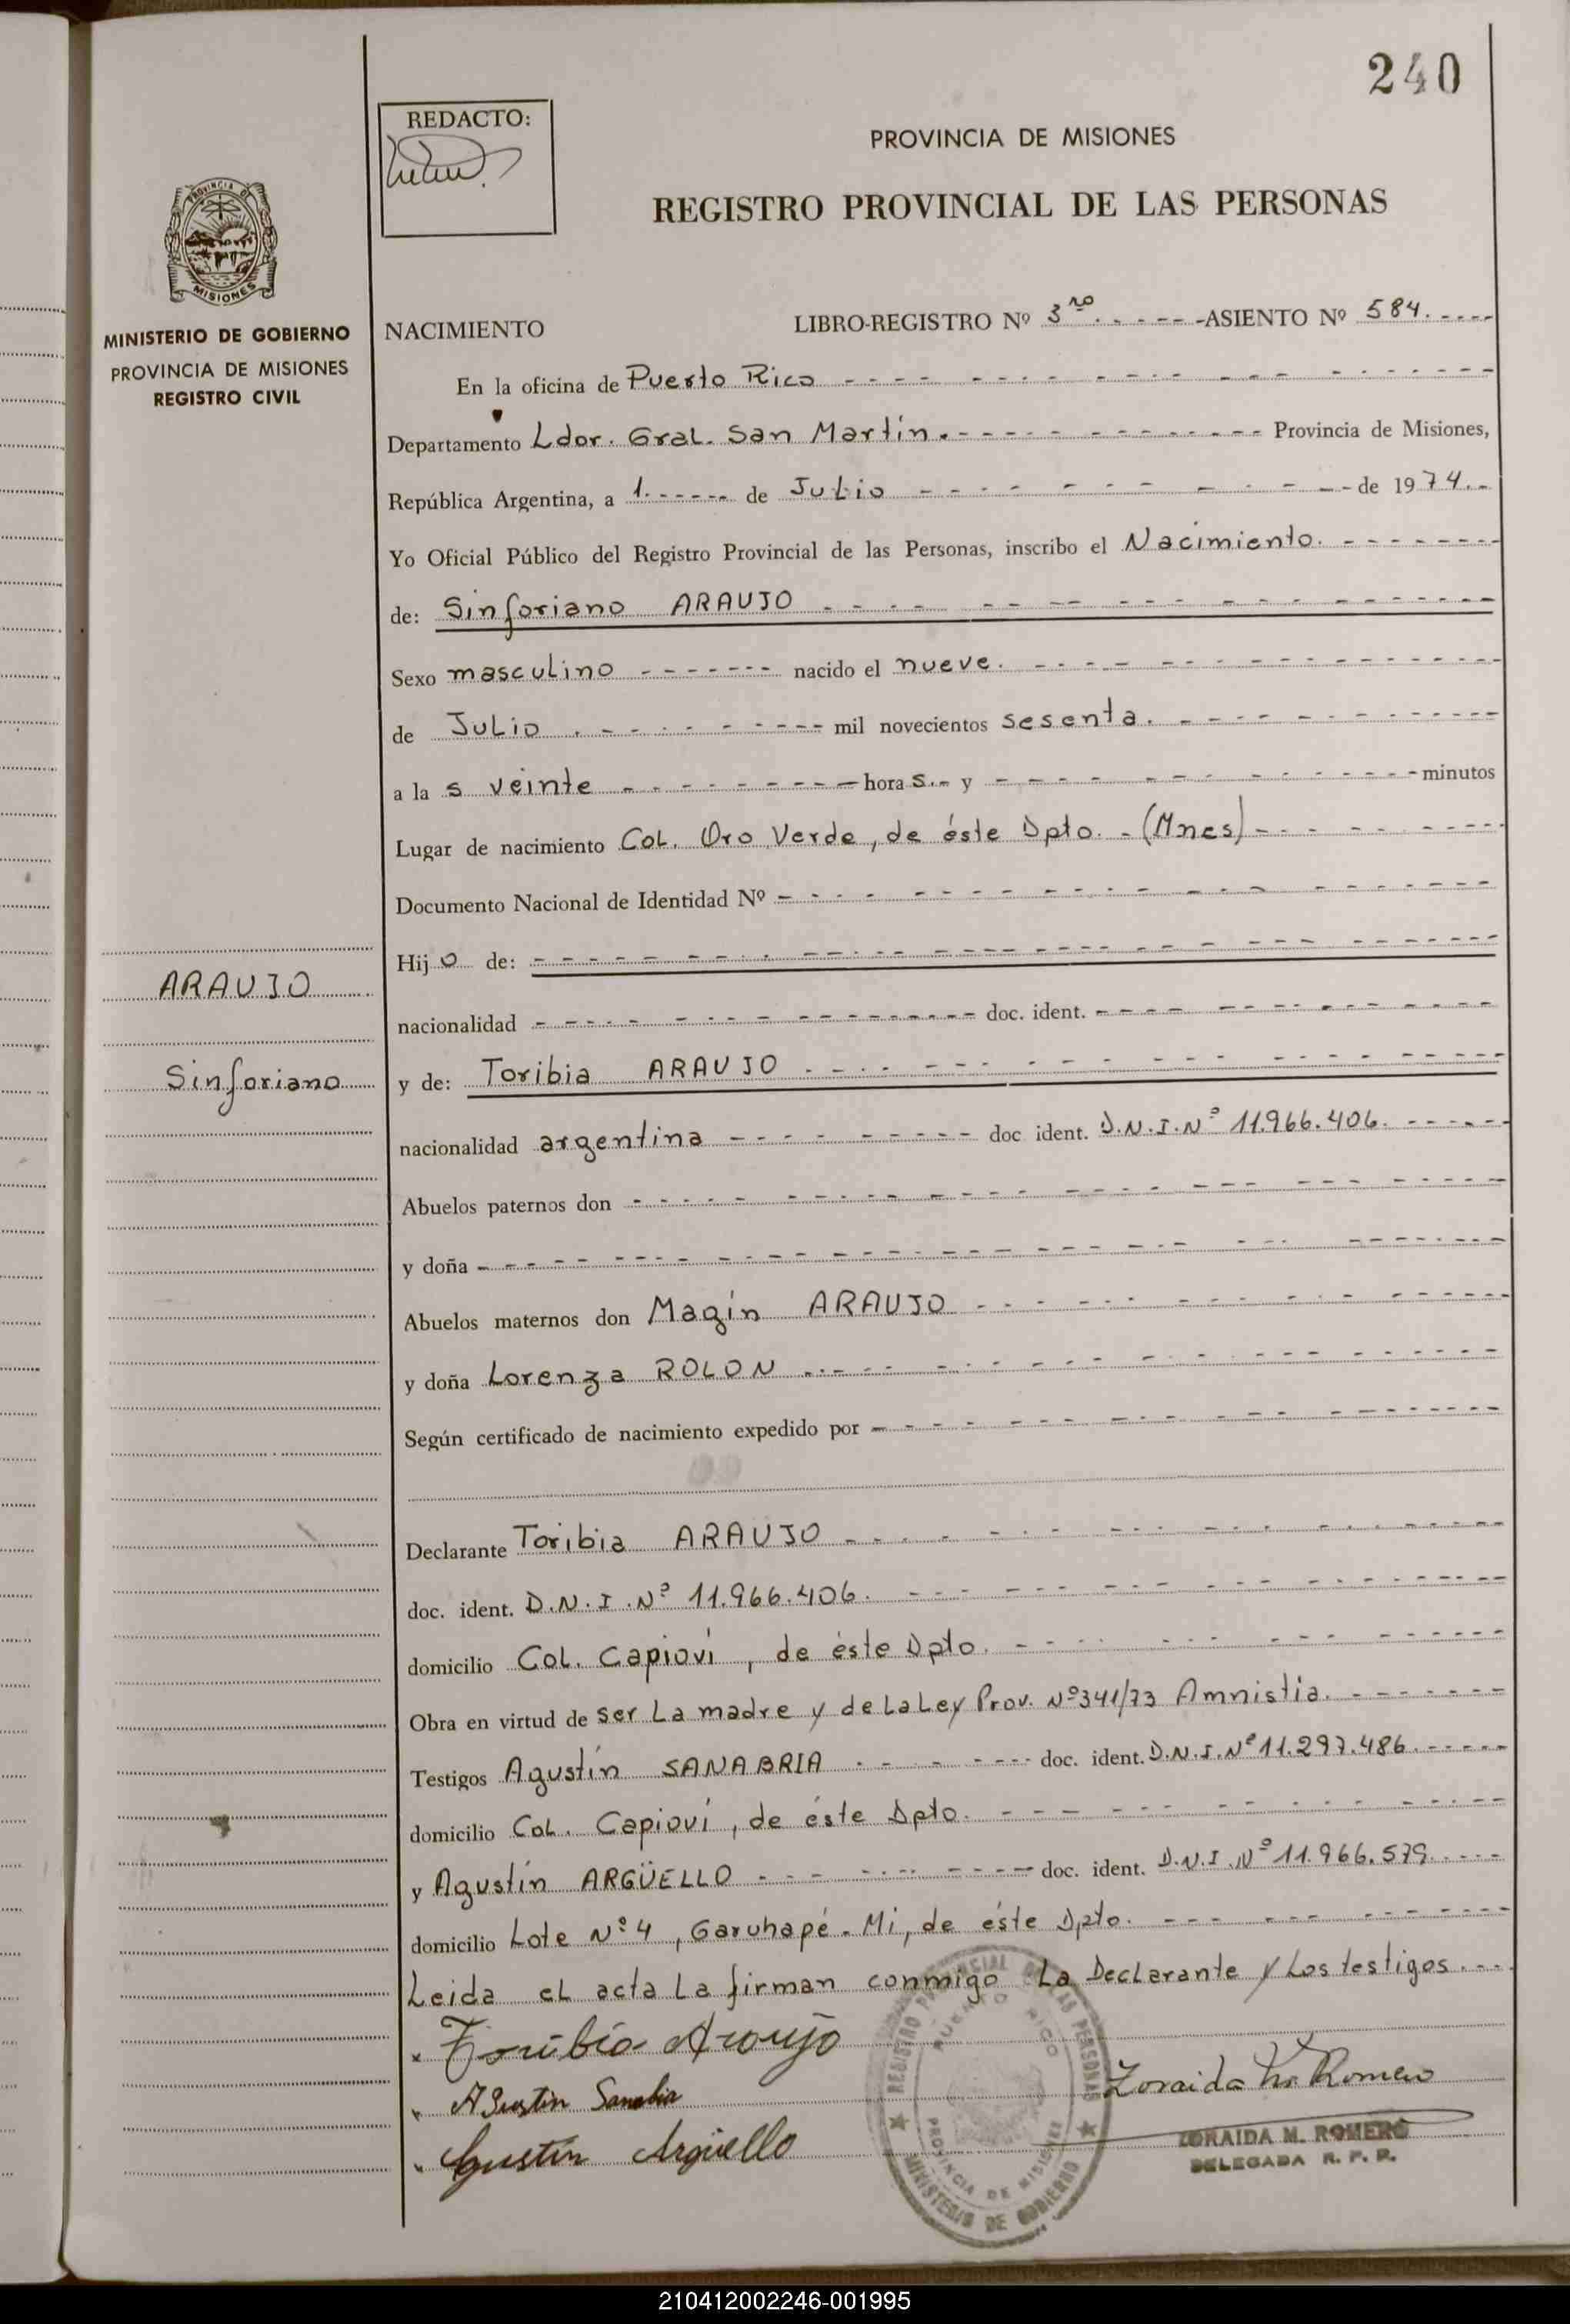 240
REDACTO:
PROVINCIA DE MISIONES
REGISTRO PROVINCIAL DE LAS PERSONAS
PROVINCIA DE
MISIONES
MINISTERIO DE GOBIERNO
PROVINCIA DE MISIONES
REGISTRO CIVIL
NACIMIENTO LIBRO-REGISTRO Nº 3ro. - - - - -ASIENTO Nº 584. - - - -
En la oficina de Puerto Rico - - - -
Departamento Ldor. Gral. San Martín. - - - - Provincia de Misiones,
República Argentina, a 1. - - - - de Julio - - - - de 1974. -
Yo Oficial Público del Registro Provincial de las Personas, inscribo el Nacimiento. - - - -
de: Sinforiano ARAUJO - - - -
Sexo masculino - - - - nacido el nueve. - - - -
de Julio . - - - - mil novecientos sesenta. - - - -
a la s veinte - - - - hora s. - y - - - - minutos
Lugar de nacimiento Col. Oro Verde, de éste Dpto. - (Mnes) - - - -
Documento Nacional de Identidad Nº - - - -
Hij o de: - - - -
ARAUJO
nacionalidad - - - - doc. ident. - - - -
Sinforiano
y de: Toribia ARAUJO - - - -
nacionalidad argentina - - - - doc ident. D.N.I.Nº 11.966.406. - - - -
Abuelos paternos don - - - -
y doña - - - -
Abuelos maternos don Magín ARAUJO - - - -
y doña Lorenza ROLON - - - -
Según certificado de nacimiento expedido por - - - -
Declarante Toribia ARAUJO - - - -
doc. ident. D.N.I.Nº 11.966.406. - - - -
domicilio Col. Capioví, de éste Dpto. - - - -
Obra en virtud de ser La madre y de La Ley Prov. Nº341/73 Amnistía. - - - -
Testigos Agustín SANABRIA - - - - doc. ident. D.N.I.Nº 11.297.486. - - - -
domicilio Col. Capioví, de éste Dpto. - - - -
y Agustín ARGÜELLO - - - - doc. ident. D.N.I.Nº 11.966.579. - - - -
domicilio Lote Nº 4, Garuhapé - Mí, de éste Dpto. - - - -
Leida el acta La firman conmigo La Declarante y Los testigos. - - -
x Toribia Araujo
Agustin Sanabria
Agustín Argüello
Zoraida M. Romero
ZORAIDA M. ROMERO
DELEGADA R. P. P.
REGISTRO PROVINCIAL DE LAS PERSONAS
PUERTO RICO
PROVINCIA DE MISIONES
MINISTERIO DE GOBIERNO
210412002246-001995